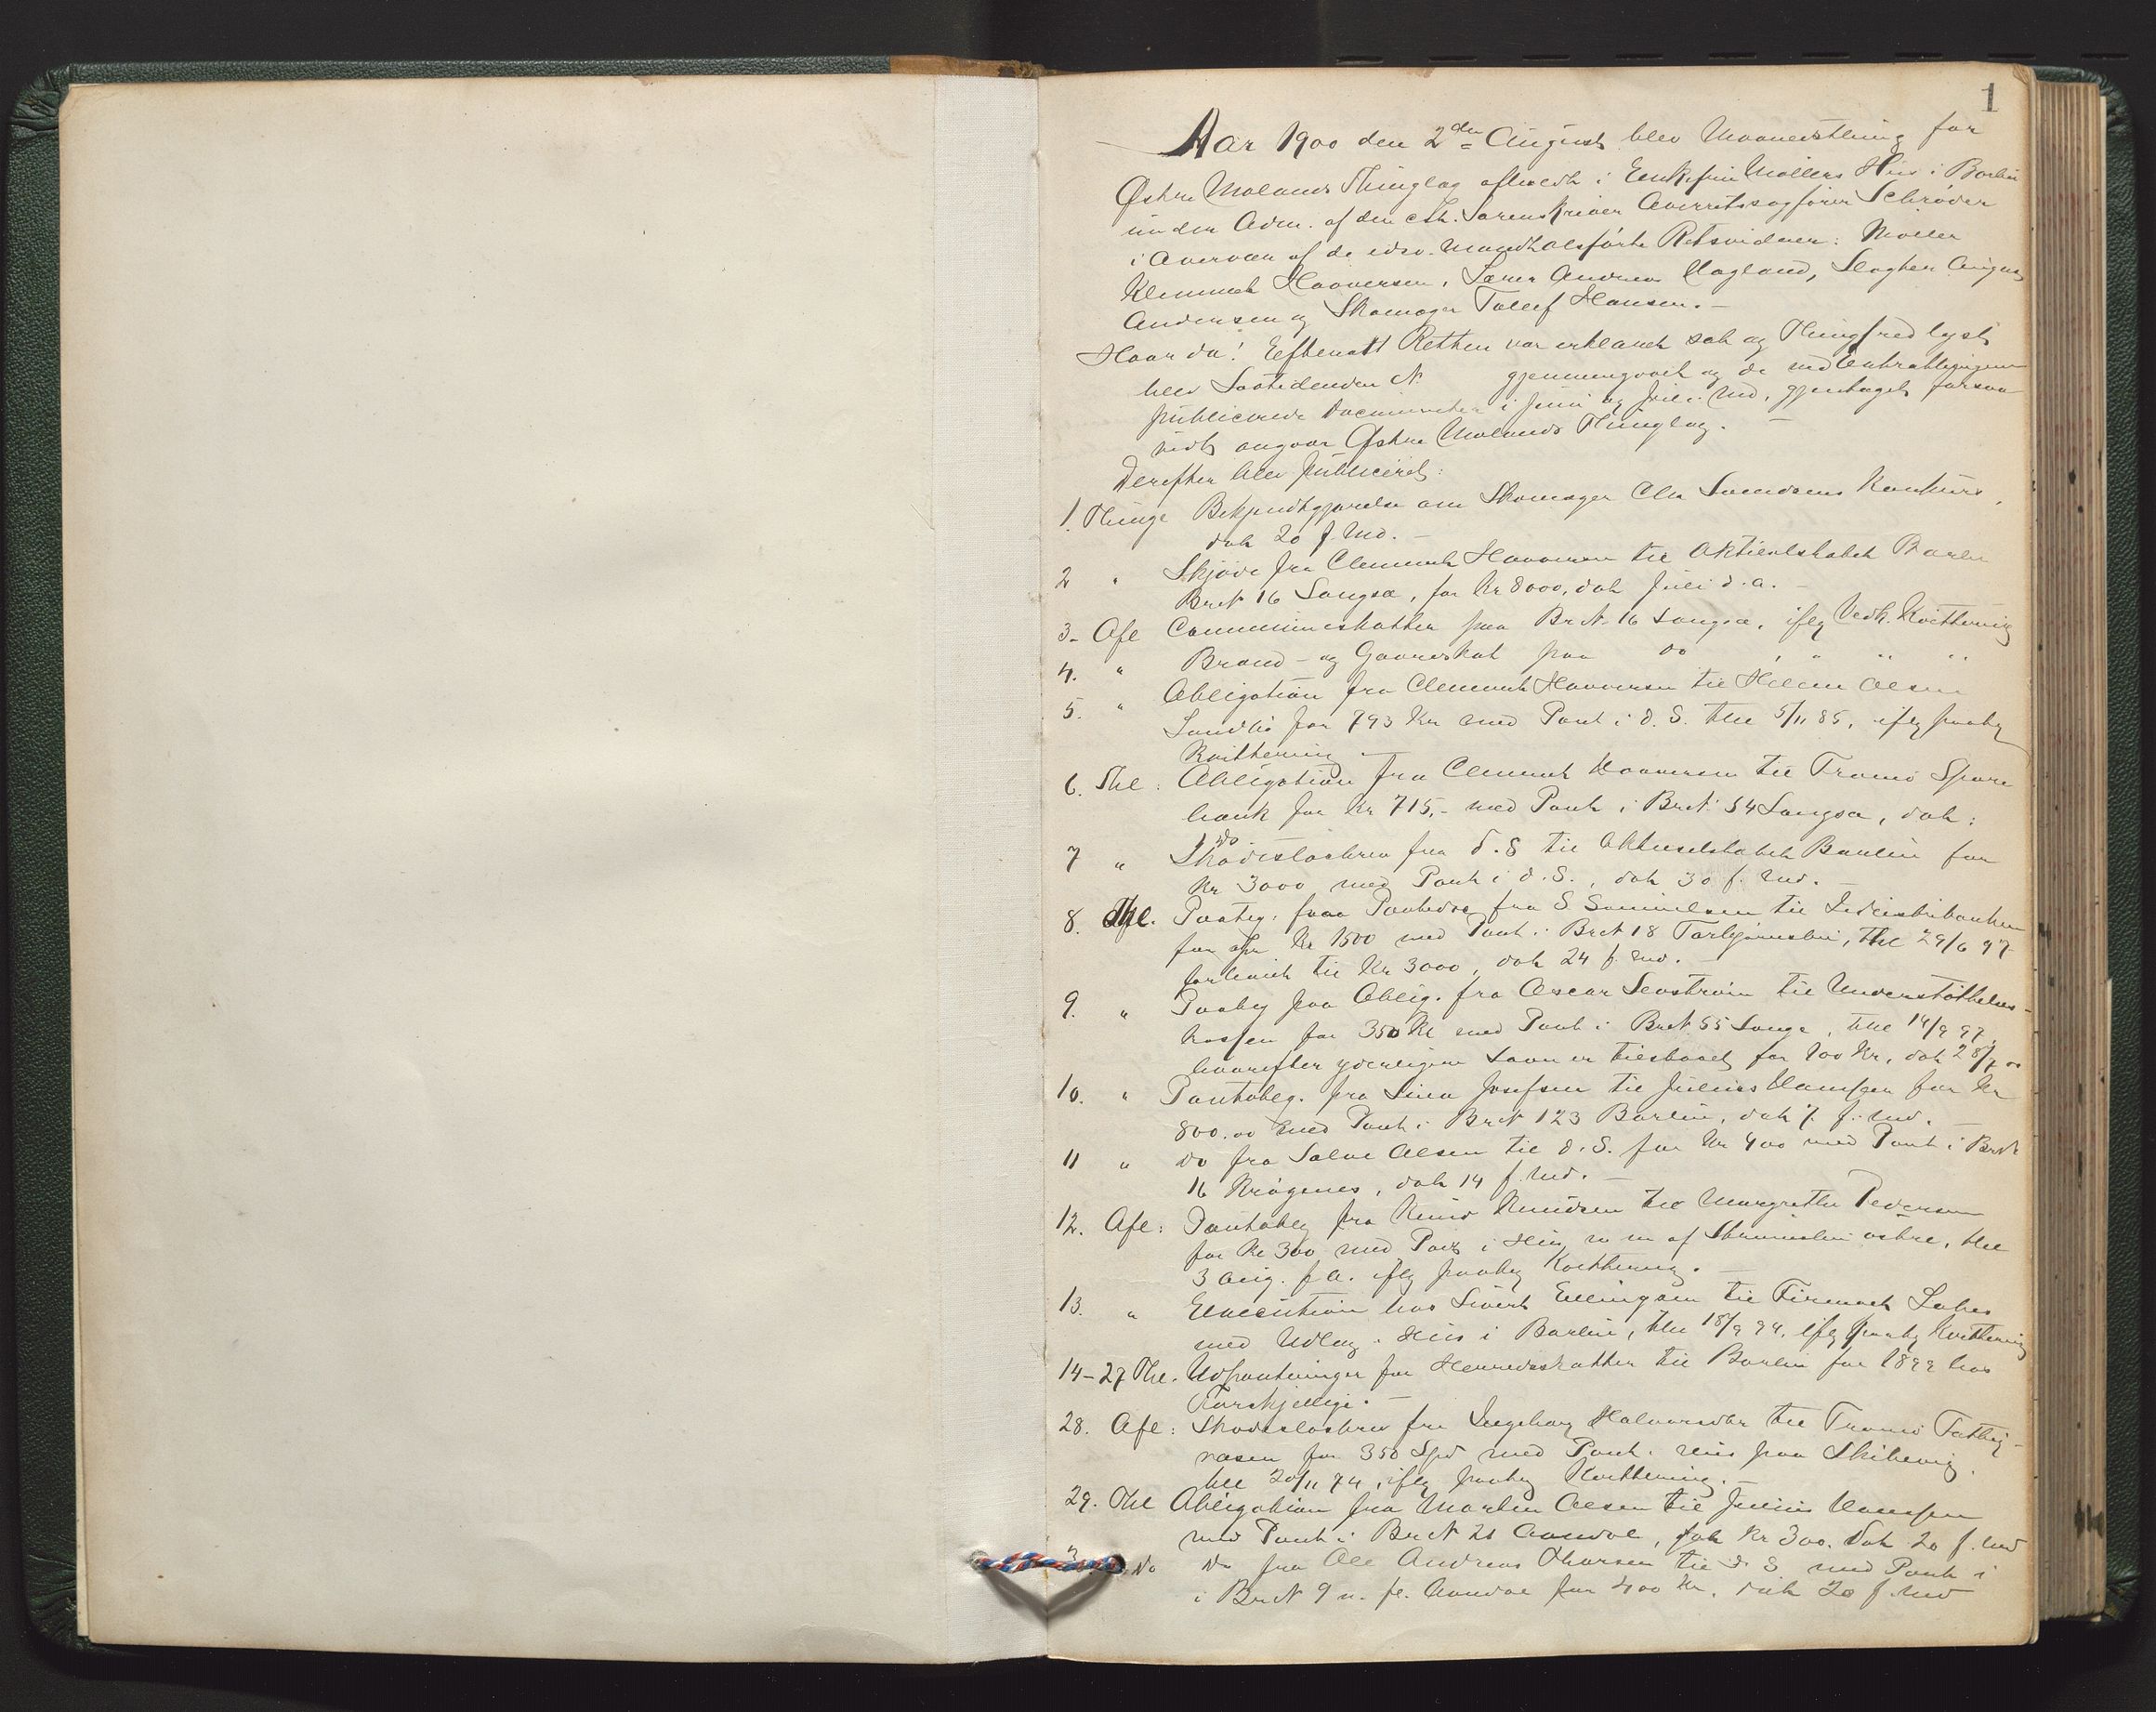 1
Aar 1900 den 2den August blev Maanedsthing for
Østre Molands Thinglag afholdt i Enkefru Møllers Hus i Barbu
under Adm. af den cst. Sorenskriver Overretssagfører Schrøder
i Overvær af de edsv. mandtalsførte Retsvidner: Møller
Klemmet Haaversen, Lærer Andreas Hagland, Slagter August
Andersen og Skomager Tallef Hansen. –
Hvor da! Efteratt Retten var erklæret sat og Thingfred lyst
blev Lovtidenden N. gjennemgaaet og de ved Extrathingene
publicerede Documenter i Juni og Juli Md. gjentaget forsaa
vidt angaar Østre Molands Thinglag. –
Derefter blev publiceret:
1. Thinge Bekjendtgjørelse om Skomager Chr Svendsens Konkurs,
dat 20 f. Md. –
2 " Skjøde fra Clemmet Haaversen til Aktieselskabet Barbu
Br N 16 Langsæ, for Kr 8000, dat Juli d.a. –
3– Afl Communeskatter paa Br N. 16 Langsæ, iflg Vedk. Kvittering
4. " Brand- og Gaardskat paa do , " " "
5. " Obligation fra Clemmet Haaversen til Helene Olsen
Sandbo for 793 Kr med Pant i d. S. thl 5/11 85, iflg paateg
Kvittering –
6. Thl: Obligation fra Clemmet Haaversen til Tromø Spare
bank for Kr 715,– med Pant i Br N 54 Langsæ, dat:
7 " Skadesløsbrev fra d. S til Aktieselskabet Barbu for
do
Kr 3000 med Pant i d. S., dat 30 f. Md. –
8. Thl. Paateg: paa Panteobl fra S Samuelsen til Industribanken
for Kr 1500 med Pant i Br N 18 Torbjørnsbu, thl 29/6 97
forhøiet til Kr 3000, dat 24 f. Md. –
9. " Paateg paa Oblig. fra Oscar Seastrøm til Understøttelses-
kassen for 350 Kr med Pant i Br N 55 Songe, thl 14/9 97,
hvorefter yderligere Laan er tilstaaet for 100 Kr, dat 28/7 00
10. " Pantobleg. fra Lina Josefsen til Julius Hansen for Kr
800.00 med Pant i Br N 123 Barbu, dat 7. f. Md. –
11 " do fra Salve Olsen til d. S. for Kr 400 med Pant i Br N
16 Krøgenes, dat 14 f. Md. –
12. Afl: Pantobleg fra Knud Knudsen til Margrethe Pedersen
for Kr 300 med Pant i Hus m m af østre, thl
3 Aug. f A. iflg paateg Kvittering. –
13. " Execution hos Sivert Ellingsen til Firmaet
med Udlæg i Hus i Barbu, thl 18/9 94, iflg paateg Kvittering
14–27 Thl. Udpantninger for Herredsskatter til Barbu for 1899 hos
Forskjellige. –
28. Afl: Skadesløsbrev fra Ingeborg Halvorsdtr til Tromø Fattig-
væsen for 350 Spd med Pant i Hus paa Skibevig
thl 20/11 74, iflg paateg Kvittering. –
29. Thl Obligation fra Martin Olsen til Julius Hansen
med Pant i Br N 21 Aamdal, for Kr 300. dat 20 f. Md
do do fra Ole Andreas Tharsen til d. S med Pant i
i Br N 9 m. fl. Aamdal for 400 Kr. dat 20 f. Md